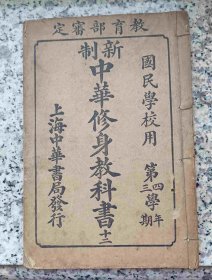 教育部審定
國民學校用
第四學年
第三學期
新制
中華修身教科書
十二
上海中華書局發行